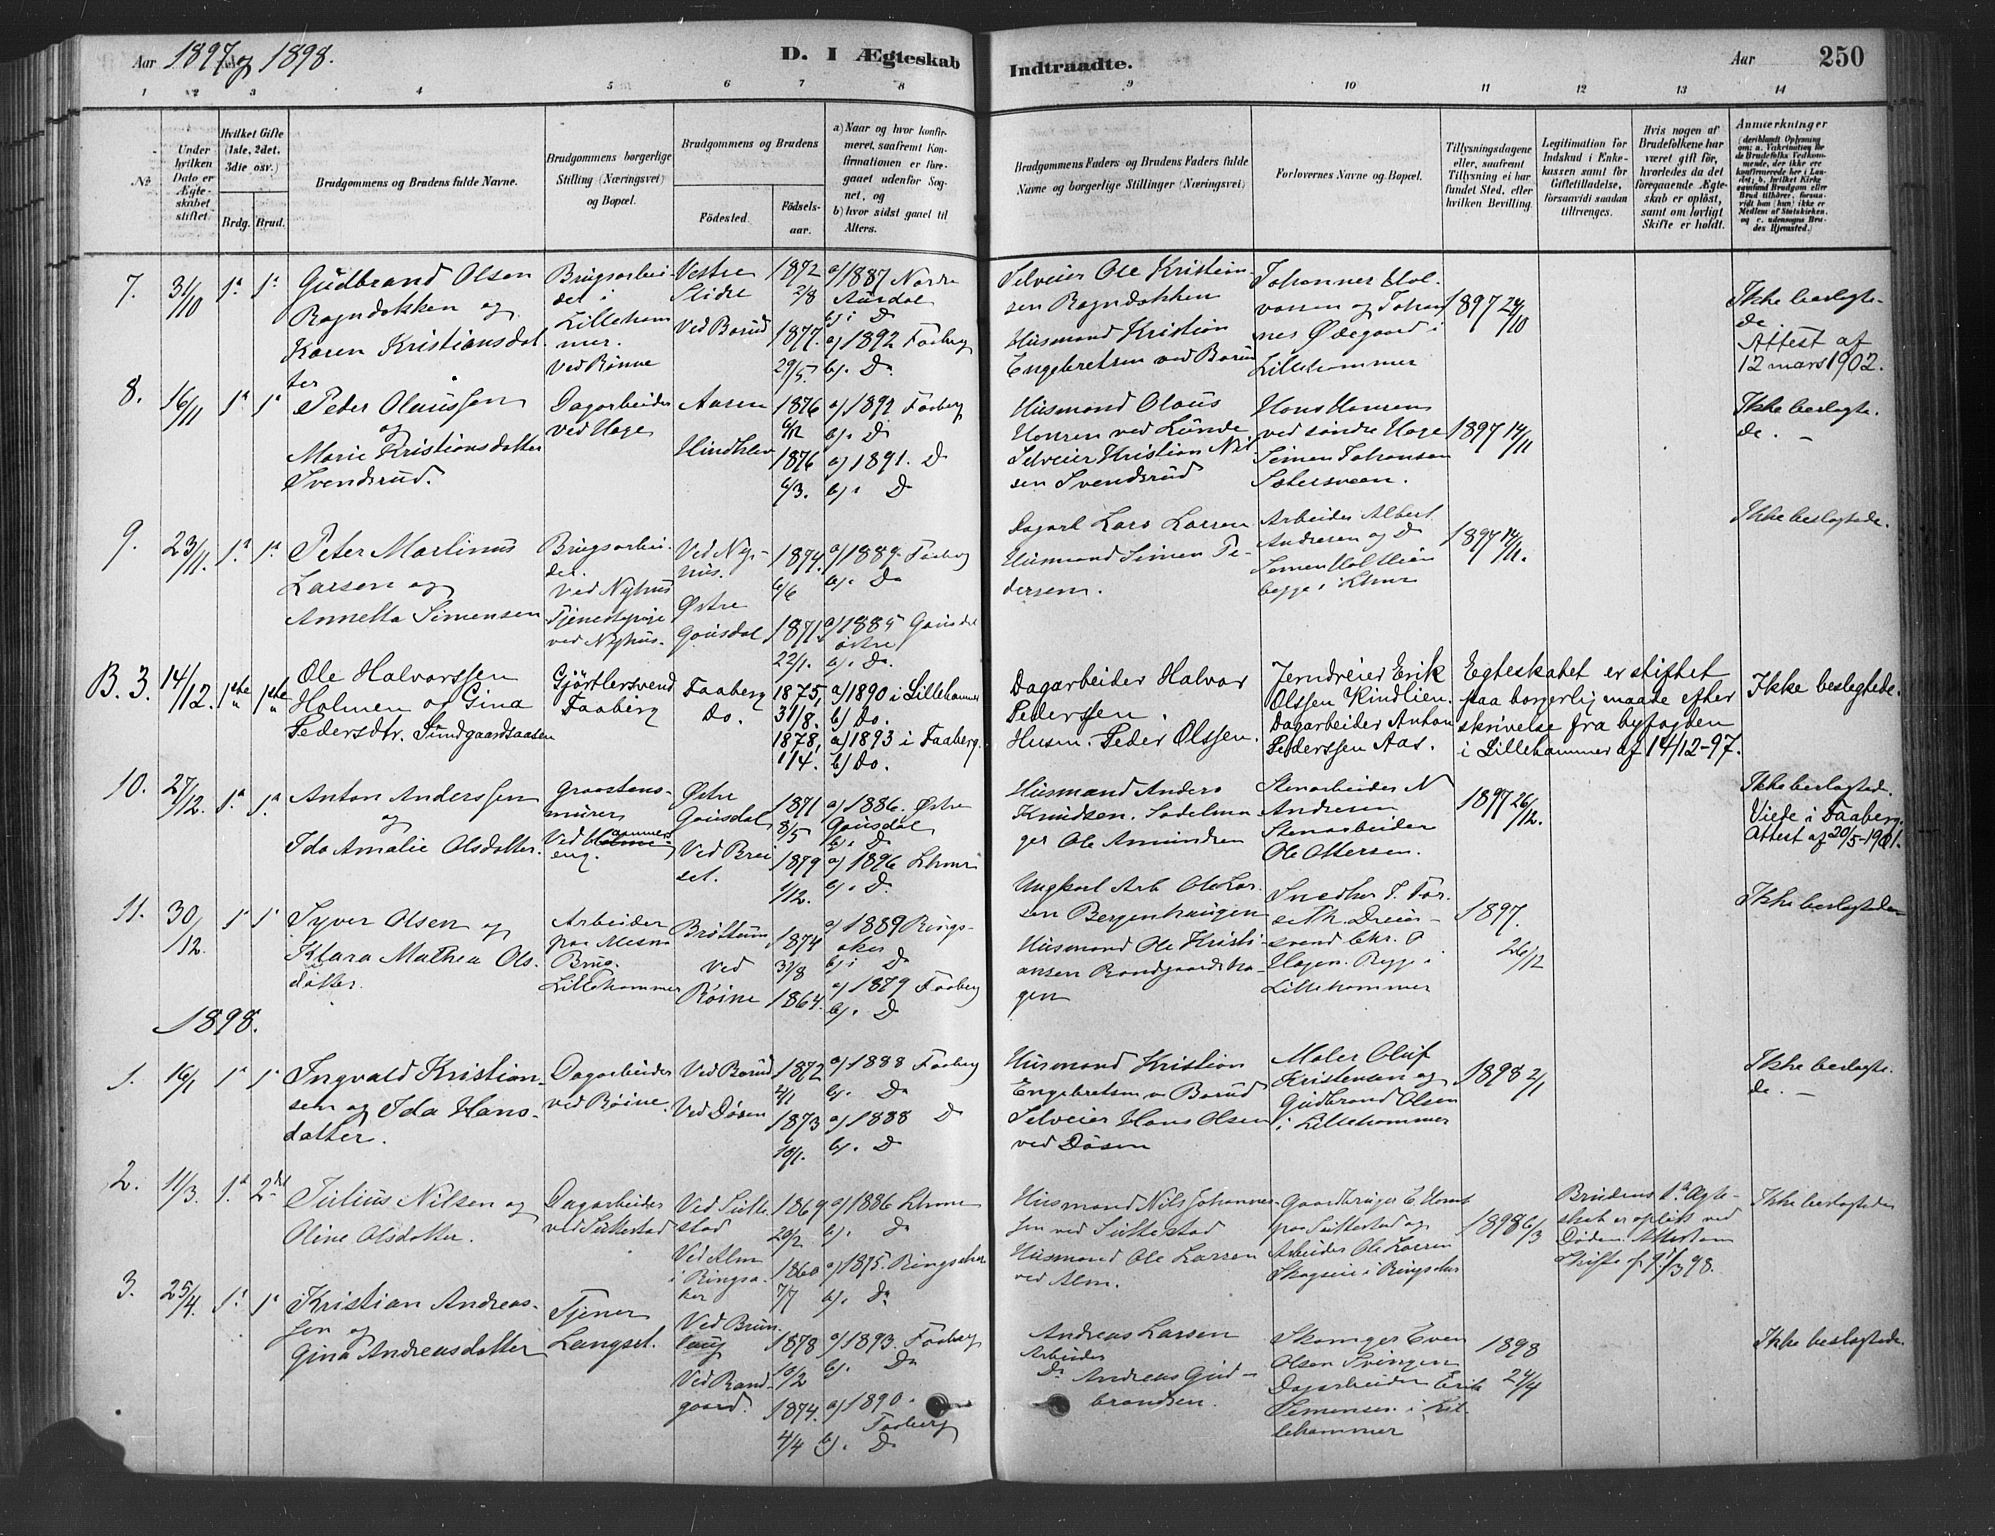 Aar 1897 og 1898.
D. I Ægteskab
Indtraadte.
Aar
250
1 2 3 4 5 6 7 8 9 10 11 12 13 14
No
Under hvilken Dato er Ægteskabet stiftet.
Hvilket Gifte (1ste, 2det, 3die osv.)
Brdg. Brud.
Brudgommens og Brudens fulde Navne.
Brudgommens borgerlige Stilling (Næringsvei) og Bopæl.
Brudgommens og Brudens
Födested.
Födselsaar.
a) Naar og hvor konfirmeret, saafremt Konfirmationen er foregaaet udenfor Sognet, og
b) hvor sidst gaaet til Alters.
Brudgommens Faders og Brudens Faders fulde Navne og borgerlige Stillinger (Næringsvei)
Forlovernes Navne og Bopæl.
Tillysningsdagene eller, saafremt Tillysning ei har fundet Sted, efter hvilken Bevilling.
Legitimation for Indskud i Enkekassen samt for Giftetilladelse, forsaavidt saadan tiltrænges.
Hvis nogen af Brudefolkene har været gift för, hvorledes da det foregaaende Ægteskab er oplöst, samt om lovligt Skifte er holdt.
Anmærkninger
7. 31/10 1ª 1ª
Gudbrand Olsen
Rogndokken og
Karen Kristiansdat
ter
Brugsarbei-
der i
Lilleham
mer.
ved Rønne
Vestre
Slidre
Ved Borud
1872
2/8
1877.
29/5.
a) 1887 Nordre
Aurdal
b) i D
a) 1892 Faaberg
b). D.
Selveier Ole Kristian-
sen Rogndokken
Husmand Kristian
Engebretsen ved Borud
Johannes Hal-
vorsen og Johan
nes Ødegaard i
Lillehammer
1897 24/10
Ikke beslegte-
de
Attest af
12 mars 1902.
8. 16/11 1ª 1ª
Peder Olaussen
og
Marie Kristiansdatter
Svendsrud.
Dagarbeider
ved Hage
Aasen
Hindklev
1876
1876
6/3.
a) 1892 Faaberg
b). D
a) 1891. D
b). D
Husmand Olaus
Hansen ved Lunde
Selveier Kristian Nil
sen Svendsrud
Hans Hansen
ved søndre Hage
Simen Johansen
Sætersveen.
1897 14/11
Ikke beslegte.
de. –
9. 23/11. 1ª 1ª
Peter Martinus
Larsen og
Annetta Simensen
Brugsarbei-
der.
Ved Nyhus
Tjenestepige
ved Nyhus.
Ved Ny-
hus.
Østre
Gausdal
1874.
6/6
1871
22/1.
a) 1889 Faaberg
b). Do
a) 1885 Gausdal
østre
b). Do.
Dagarb. Lars Larsen
Husmand Simen Pe-
dersen.
Arbeider Albert
Andresen og D
begge i Lhmr
1897 14/11.
Ikke beslegtede.
B. 3. 14/12. 1ste 1ste
Ole Halvorssen
Holmen og Gina
Pedersdtr. Sundgaardsaasen
Gjørtlersvend
Faaberg
Faaberg
Do.
1875,
31/8.
1878,
1/4.
a) 1890 i Lillehammer
b) Do.
a) 1893 i Faaberg.
b) Do.
Dagarbeider Halvor
Pederssen.
Husm. Peder Olssen.
Jerndreier Erik
Olssen Kindlien.
Dagarbeider Anton
Pederssen Aas.
Egteskabet er stiftet
paa borgerlig maade efter
skrivelse fra byfogden
i Lillehammer af 14/12-97.
Ikke beslegtede.
10. 27/12. 1ª 1ª
Anton Anderssen
og
Ida Amalie Olsdatter.
Graastens-
murer
eng.
Østre
Gausdal
Ved Brei
set.
1871
8/5
1879
1/12.
a) 1886. Østre
Gausdal
b). D
a) 1896 Lhmr
b). D.
Husmand Anders
Knudsen. Sadelma
ger Ole Amundsen
Stenarbeider N
Andresen
Stenarbeider
Ole Ottersen.
1897 26/12.
Ikke beslegtede.
Viede i Faaberg.
Attest af 20/5-1901.
11. 30/12. 1ª 1ª
Syver Olsen og
Klara Mathea Ols.
datter.
Arbeider
paa Mesna
Brug.
Lillehammer
Brøttum
Ved
Røine
1874
31/8
1864.
a) 1889 Rings-
aker
b) i D
a) 1879 Faaberg
b). D
Ungkarl Arb. Ole Lar.
sen Bergenhaugen
Husmand Ole Kristi-
ansen Randgaardsha-
gen
Snedker T. Tor.
seth. Dreier-
svend Chr. O
Hagen. Begge i
Lillehammer
1897.
26/12
Ikke beslegtede
1898.
1. 16/1 1ª 1ª
Ingvald Kristian-
sen og Ida Hans-
datter.
Dagarbeider
ved Røine.
Ved Borud
Ved Døsen
1872
2/1
1873
10/1.
a) 1888 Faaberg
b). Do
a) 1888 D
b). D
Husmand Kristian
Engebretsen v Borud
Selveier Hans Olsen
ved Døsen
Maler Oluf
Kristensen og
Gudbrand Olsen
i Lillehammer
1898 2/1
Ikke beslegte.
de. –
2. 11/3. 1ª. 2det
Julius Nilsen og
Oline Olsdatter.
Dagarbeider
ved Suttestad
Ved Sutte
stad
Ved Alm
i Ringsa.
ker
1869
20/2
1860
7/7
a) 1886 Lhmr
b). D
a) 1875. Ringsaker
b). Do
Husmand Nils Johannes-
sen ved Suttestad
Husmand Ole Larsen
ved Alm.
paa Suttestad og
Arbeider Ole Larsen
Skogen i Ringsaker
1898 6/3
Brudens 1ª Ægte-
skab er opløst ved
Døden. Attest om
Skifte af 9/3 98.
Ikke beslegtede
3. 25/4. 1ª 1ª
Kristian Andreas-
sen og
Gina Andreasdatter
Tjener
Langset.
Ved Brun
laug
Ved Rand-
gaard.
1878
10/2
1874.
4/4
a) 1893. Faaberg
b). Do
a) 1890.
Faaberg
b). D
Andreas Larsen
Arbeider
Do Andreas Gud-
brandsen.
Skomager Even
Olsen Svingen
Dagarbeider Erik
Simensen i Lil-
lehammer
1898
24/4
Ikke beslegtede.